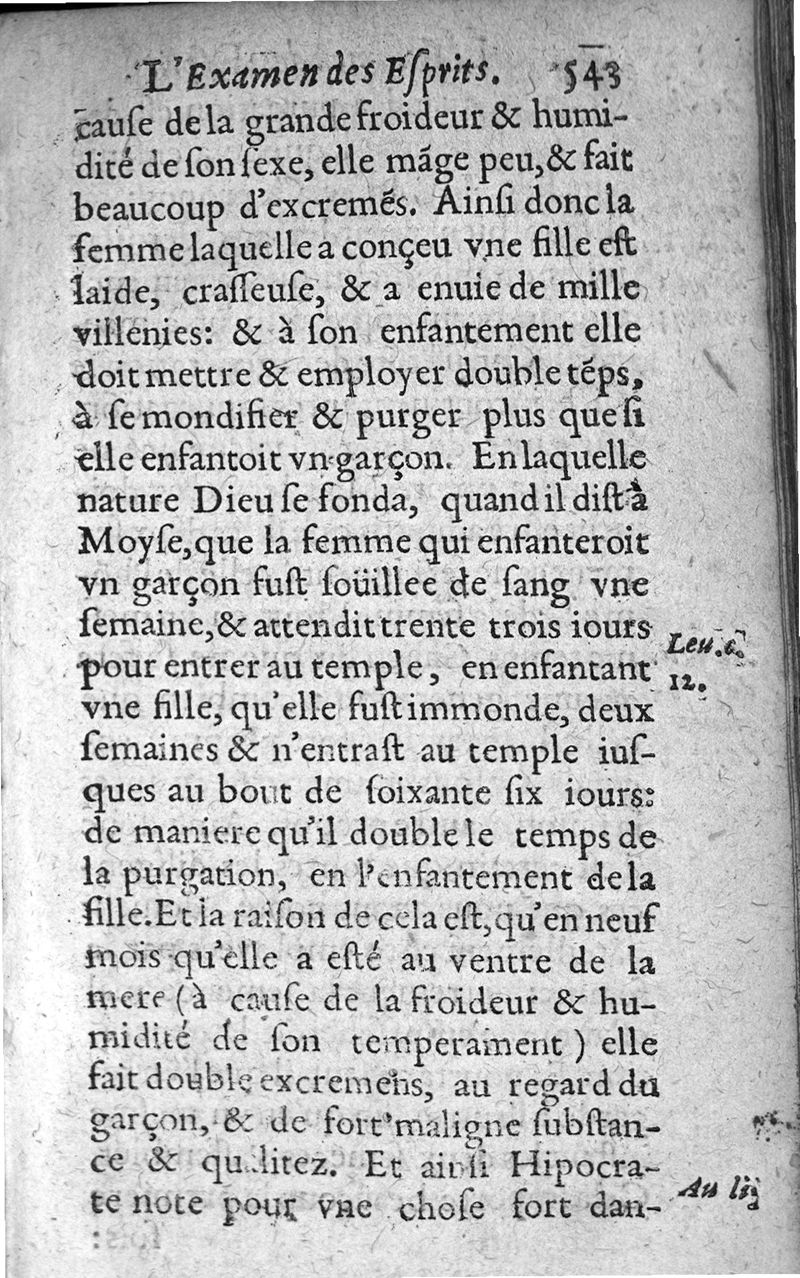 L'Examen des Eſprits. 543
cauſe de la grande froideur & humi-
dité de ſon ſexe, elle mãge peu, & fait
beaucoup d'excremẽs. Ainſi donc la
femme laquelle a conçeu vne fille eſt
laide, craſſeuſe, & a enuie de mille
villenies: & à ſon enfantement elle
doit mettre & employer double tẽps,
à ſe mondifier & purger plus que ſi
elle enfantoit vn garçon. En laquelle
nature Dieu ſe fonda, quand il diſt à
Moyſe, que la femme qui enfanteroit
vn garçon fuſt ſoüillee de ſang vne
ſemaine, & attendit trente trois iours
Leu. c.
pour entrer au temple, en enfantant
12.
vne fille, qu'elle fuſt immonde, deux
ſemaines & n'entraſt au temple iuſ-
ques au bout de ſoixante ſix iours:
de maniere qu'il double le temps de
la purgation, en l'enfantement de la
fille. Et la raiſon de cela eſt, qu'en neuf
mois qu'elle a eſté au ventre de la
mere (à cauſe de la froideur & hu-
midité de ſon temperament) elle
fait double excremens, au regard du
garçon, & de fort maligne ſubſtan-
ce & qualitez. Et ainſi Hipocra-
te note pour vne choſe fort dan-
Au li